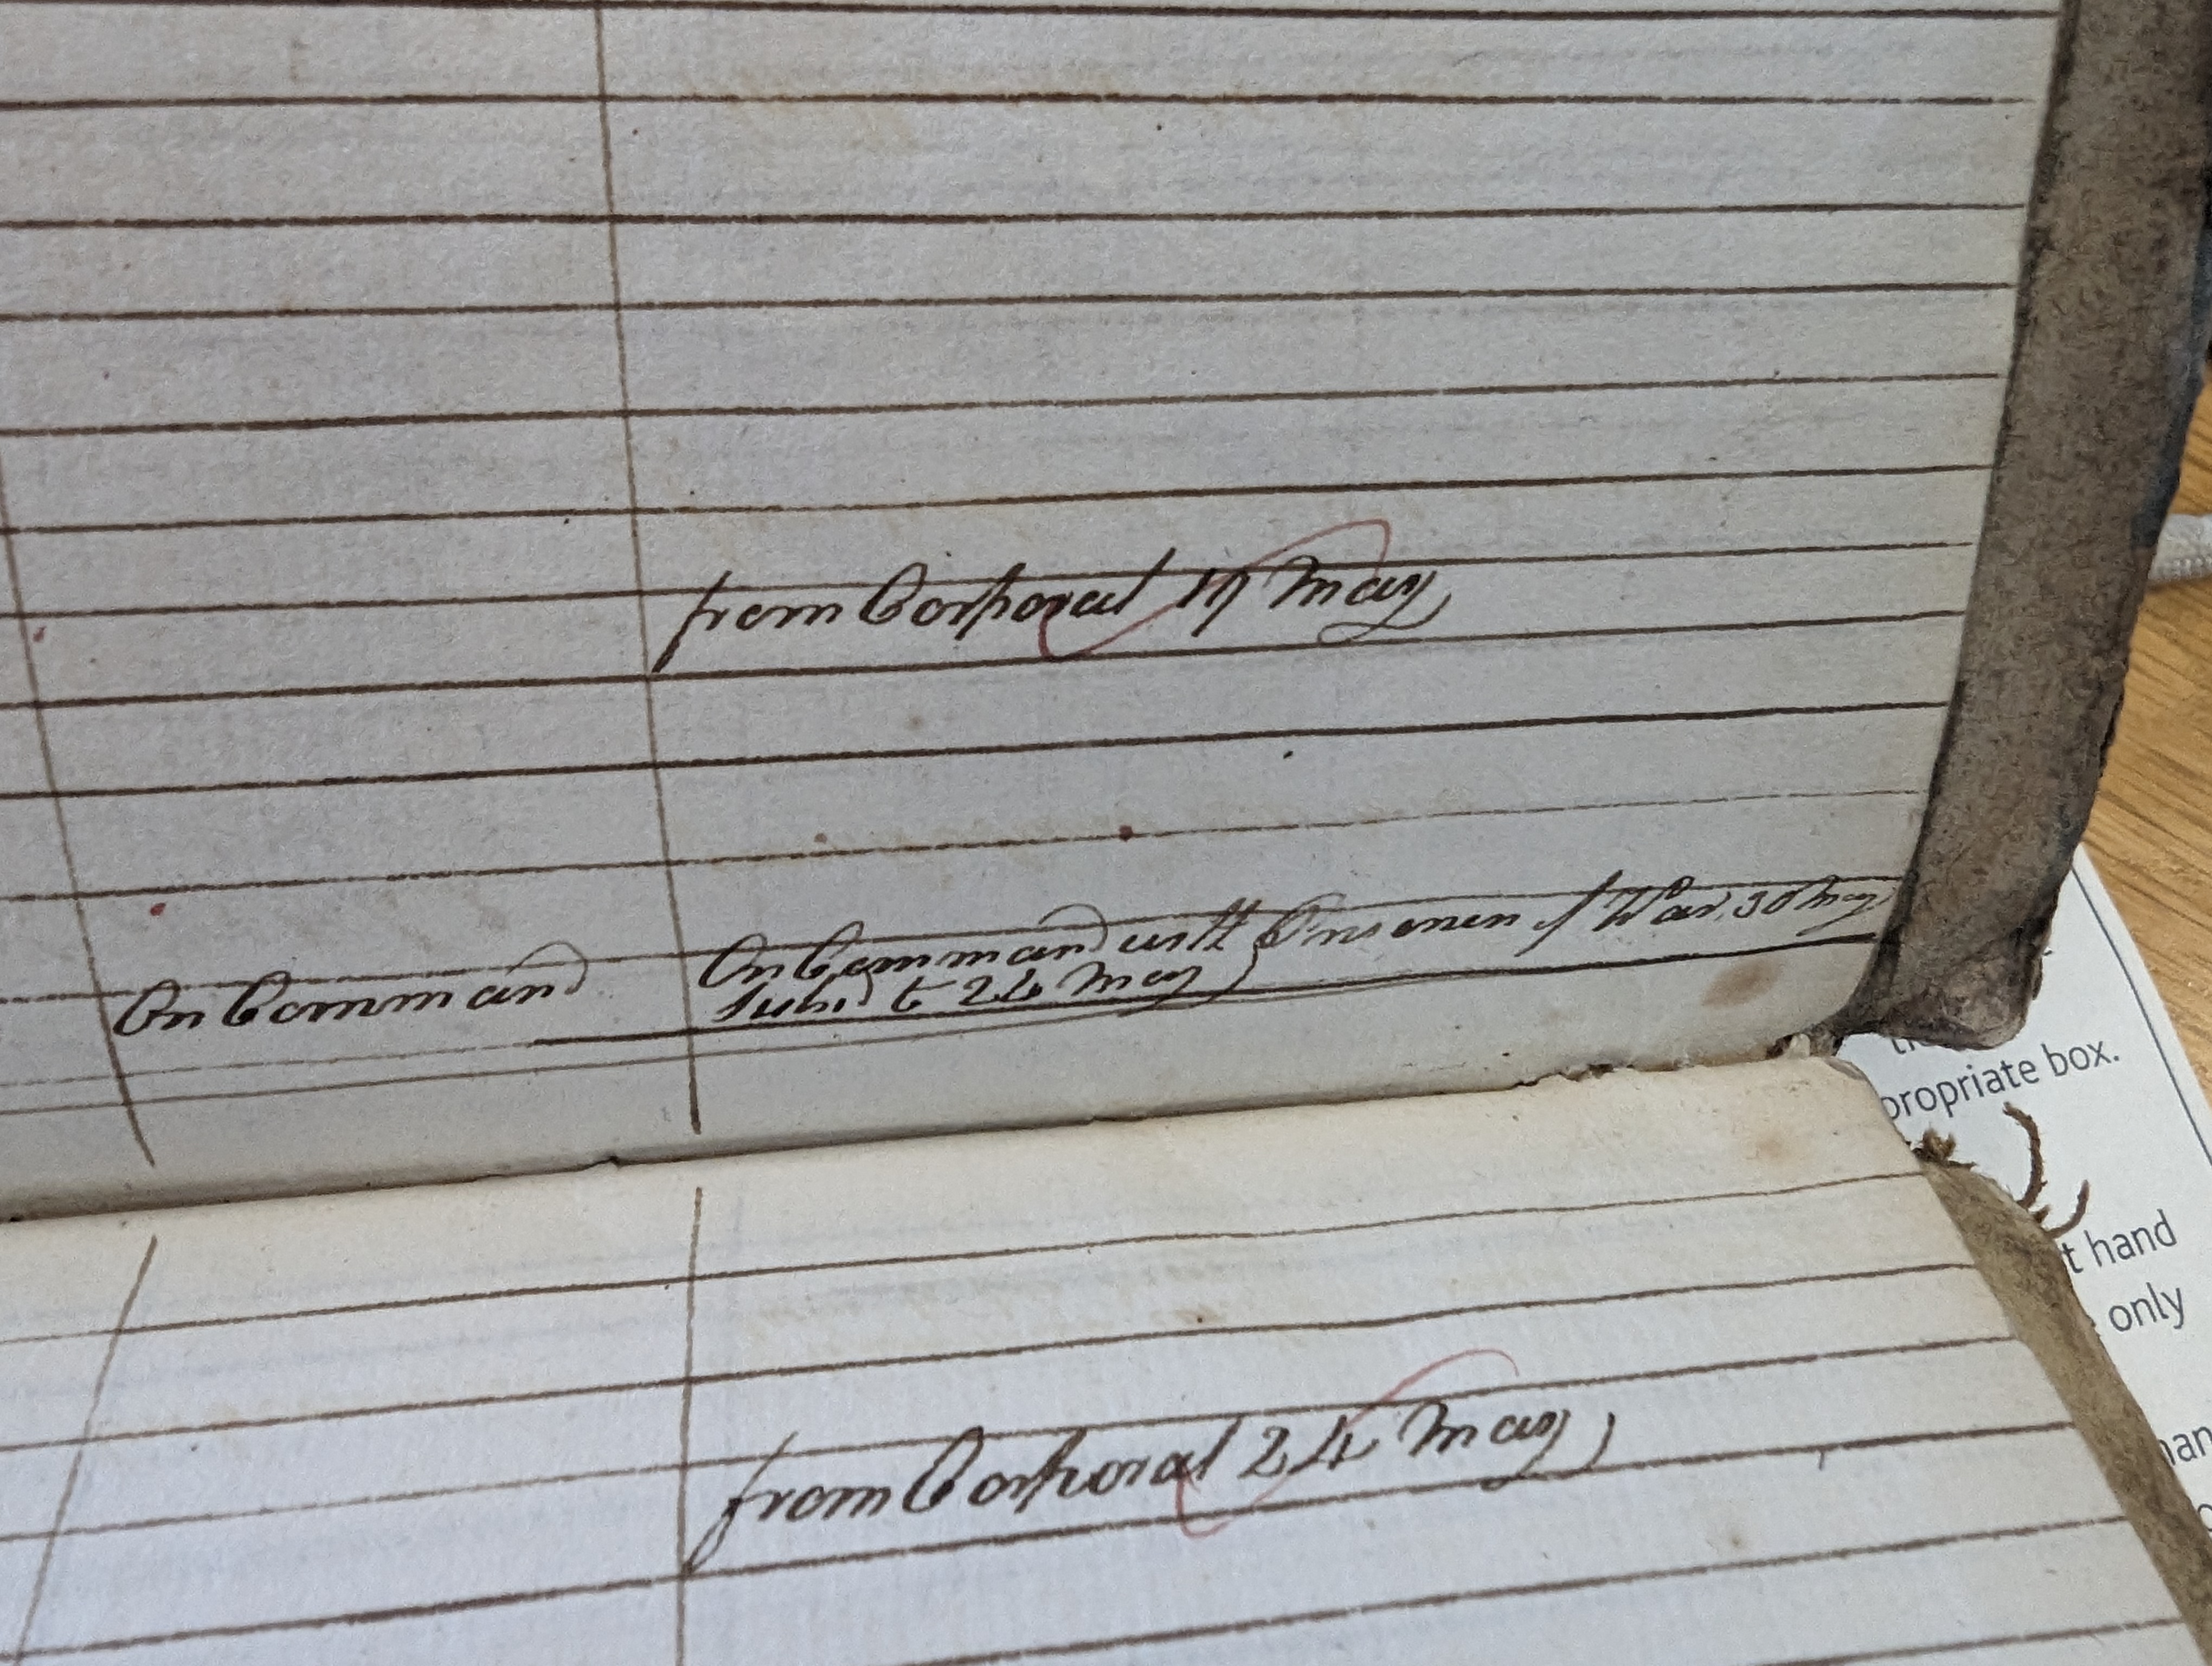 from Corporal 17 May
On Command
On Command with Prisoners of War, 30 May
Subsd to 24 May
from Corporal 24 May
propriate box.
t hand
only